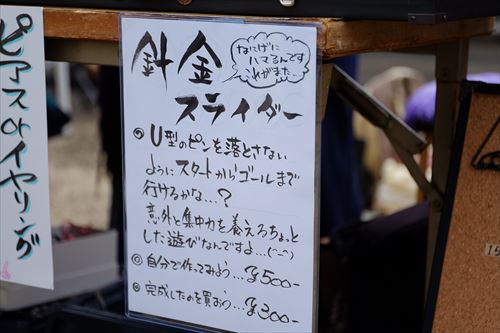 ピアスorイヤリング
針金
スライダー
なにげに
ハマるんです
これがまた…
◎U型のピンを落とさない
ようにスタートからゴールまで
行けるかな…?
意外と集中力を養えるちょっと
した遊びなんですよ…(^-^)
◎自分で作ってみよう…¥500-
◎完成したのを買おう…¥300-